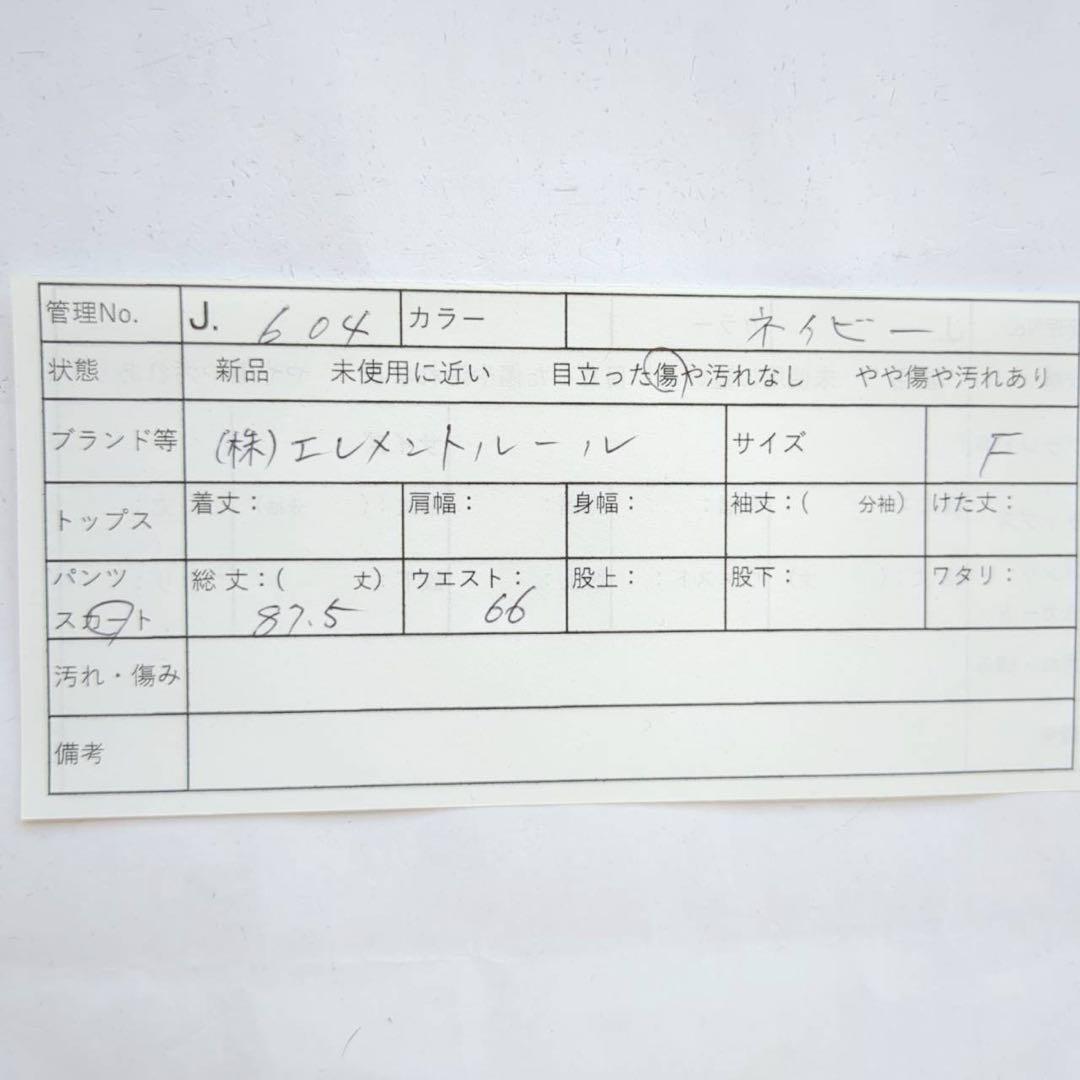 管理No. J. 604 カラー ネイビー
状態 新品 未使用に近い 目立った傷や汚れなし やや傷や汚れあり
ブランド等 (株)エレメントルール サイズ F
トップス 着丈： 肩幅： 身幅： 袖丈：( 分袖) けた丈：
パンツ 総丈：( 丈) ウエスト： 股上： 股下： ワタリ：
スカート 87.5 66
汚れ・傷み
備考